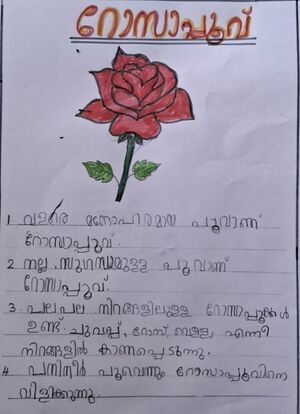 റോസാപ്പൂവ്
1 വളരെ മനോഹരമായ പൂവാണ്
റോസാപ്പൂവ്.
2 നല്ല സുഗന്ധമുള്ള പൂവാണ്
റോസാപ്പൂവ്.
3. പല പല നിറങ്ങളിലുള്ള റോസാപ്പൂക്കൾ
ഉണ്ട്. ചുവപ്പ്, റോസ്, വെള്ള എന്നീ
നിറങ്ങളിൽ കാണപ്പെടുന്നു.
4 പനിനീർ പൂവെന്നും റോസാപ്പൂവിനെ
വിളിക്കുന്നു.